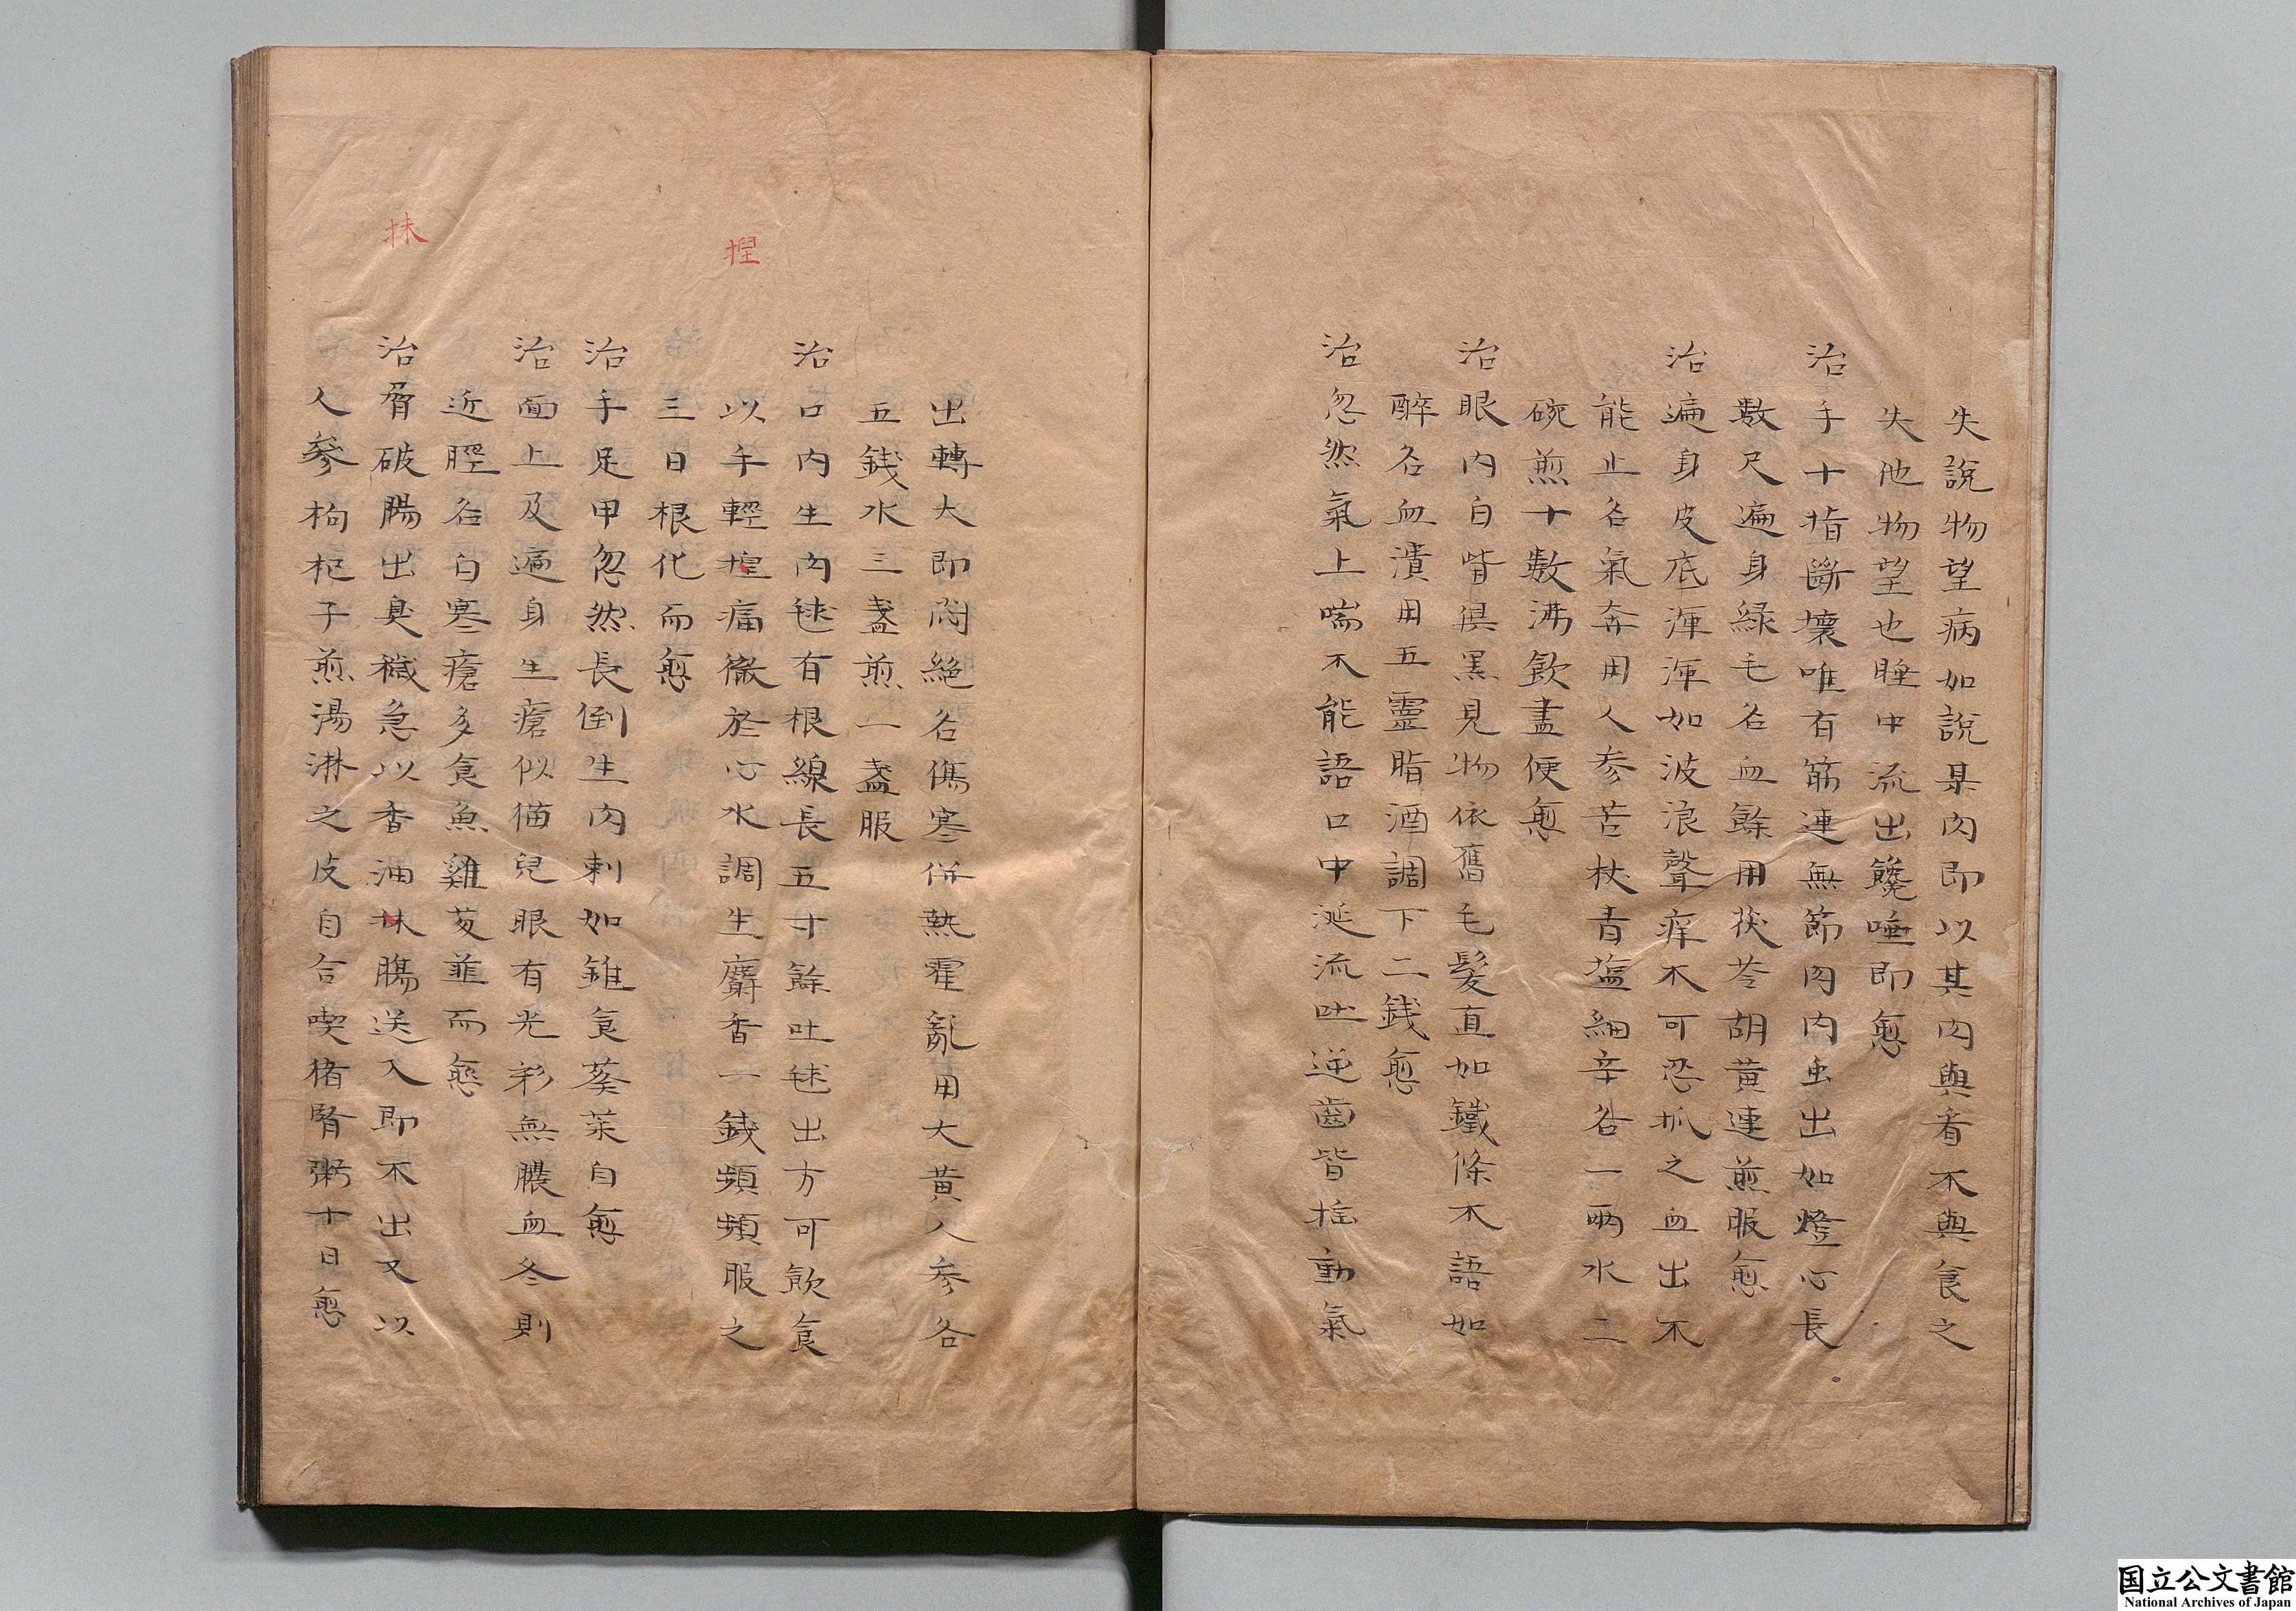 失說物望病如說某肉即以其肉與看不與食之
失他物望也睡中流出饞唾即愈
治手十指斷壞唯有筋連無節肉肉虫出如燈心長
數尺遍身綠毛名血餘用茯苓胡黃連煎服愈
治遍身皮底渾渾如波浪聲痒不可忍抓之血出不
能止名氣奔用人参苦杖青塩細辛各一兩水二
碗煎十數沸飲盡便愈
治眼內白眥俱黑見物依舊毛髮直如鐵條不語如
醉名血潰用五靈脂酒調下二銭愈
治忽然氣上喘不能語口中涎流吐逆齒皆揺動氣
出轉大即悶絕名傷寒併熱霍亂用大黃人参各
五銭水三盞煎一盞服
治口內生肉毬有根線長五寸餘吐毬出方可飲食
以手輕揑痛徹於心水調生麝香一銭頻頻服之
三日根化而愈
治手足甲忽然長倒生肉刺如錐食葵菜自愈
治面上及遍身生瘡似猫兒眼有光彩無膿血冬則
近脛名白寒瘡多食魚雞葱韮而愈
治脅破腸出臭穢急以香油抹腸送入即不出又以
人參枸杞子煎湯淋之皮自合喫猪腎粥十日愈
揑
抹
国立公文書館
National Archives of Japan